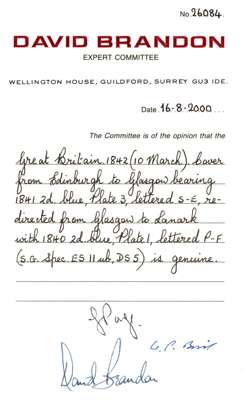 No. 26084.
DAVID BRANDON
EXPERT COMMITTEE
WELLINGTON HOUSE, GUILDFORD, SURREY GU3 1DE.
Date. 16-8-2000
The Committee is of the opinion that the
Great Britain. 1842 (10 March). Cover
from Edinburgh to Glasgow bearing
1841 2d. blue, Plate 3, lettered S-E, re-
directed from Glasgow to Lanark
with 1840 2d. blue, Plate 1, lettered P-F
(S.G. Spec. ES 11 ub, DS 5) is genuine.
David Brandon